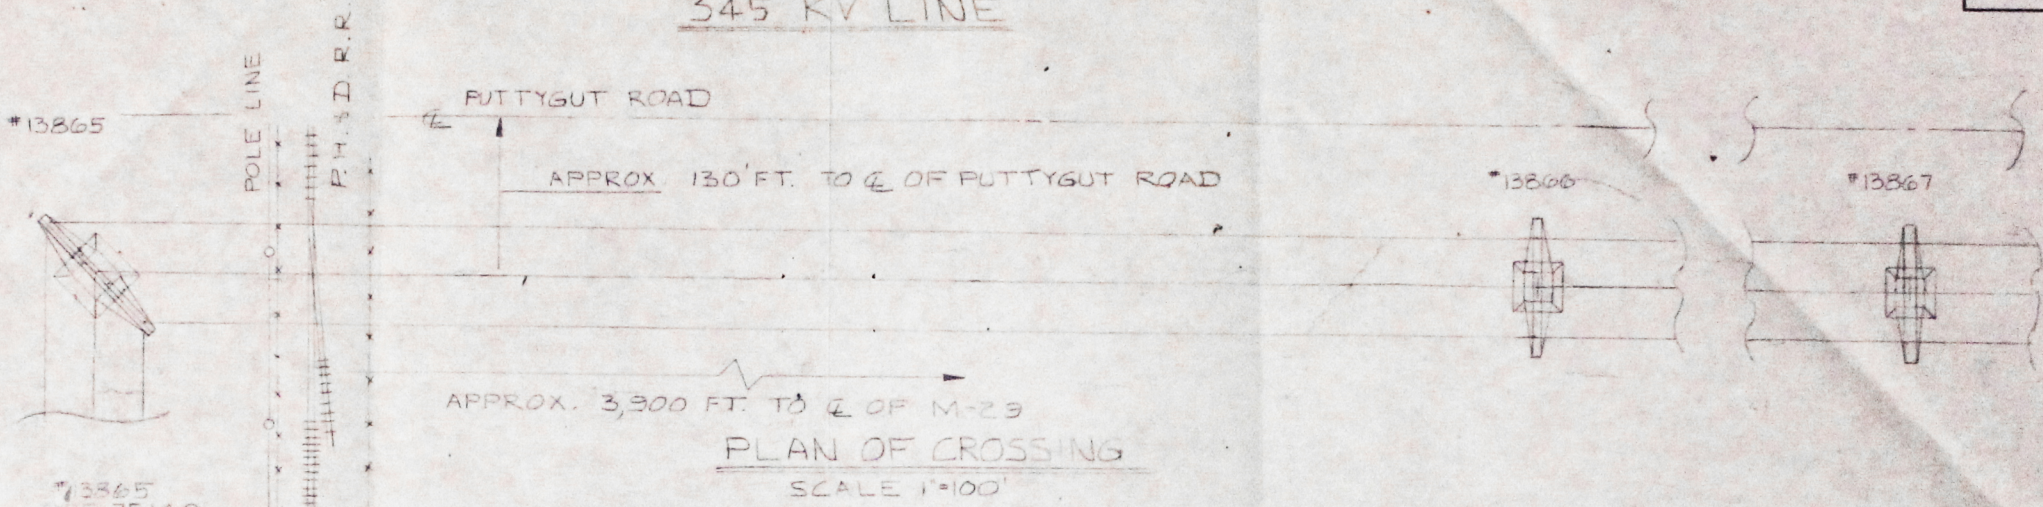 345 KV LINE
POLE LINE
P.H. & D R.R.
℄ PUTTYGUT ROAD
#13865
APPROX. 130' FT. TO ℄ OF PUTTYGUT ROAD
#13866
#13867
APPROX. 3,900 FT. TO ℄ OF M-29
PLAN OF CROSSING
SCALE 1"=100'
#13865